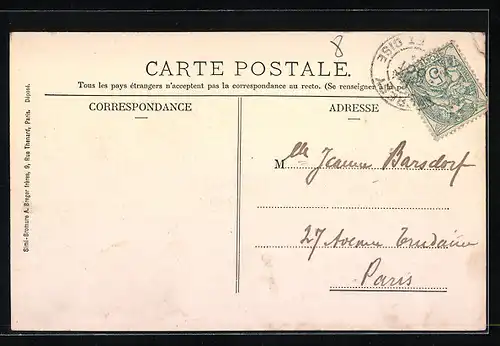 8
CARTE POSTALE.
Tous les pays étrangers n'acceptent pas la correspondance au recto. (Se renseigner à la
CORRESPONDANCE
ADRESSE
Mlle Jeanne Barsdorf
27 Avenue Trudaine
Paris
Simi-Bromure A. Breger frères, 9, Rue Thenard, Paris. Déposé.